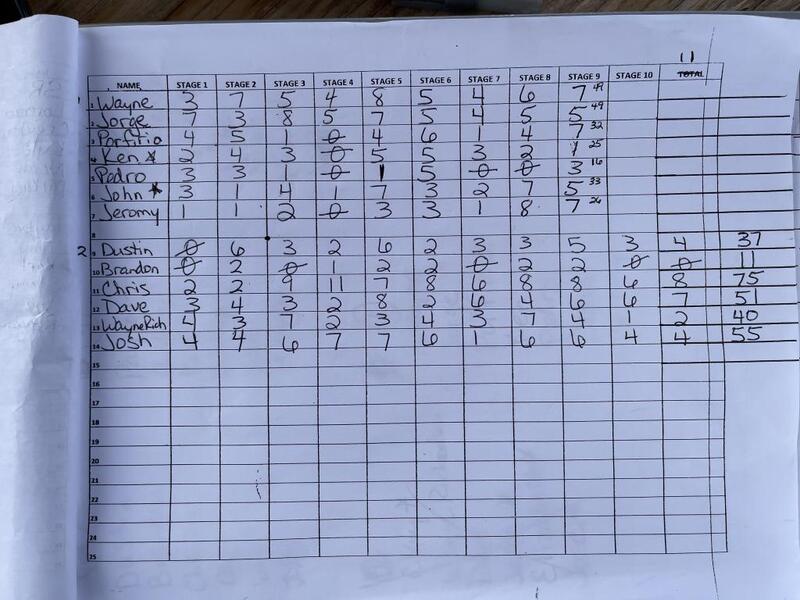 11
NAME STAGE 1 STAGE 2 STAGE 3 STAGE 4 STAGE 5 STAGE 6 STAGE 7 STAGE 8 STAGE 9 STAGE 10 TOTAL
1 Wayne 3 7 5 4 8 5 4 6 7 49
2 Jorge 7 3 8 5 7 5 4 5 5 49
3 Porfitio 4 5 1 0 4 6 1 4 7 32
4 Ken * 2 4 3 0 5 5 3 2 1 25
5 Pedro 3 3 1 0 1 5 0 0 3 16
6 John * 3 1 4 1 7 3 2 7 5 33
7 Jeromy 1 1 2 0 3 3 1 8 7 26
8
2 9 Dustin 0 6 3 2 6 2 3 3 5 3 4 37
10 Brandon 0 2 0 1 2 2 0 2 2 0 0 11
11 Chris 2 2 9 11 7 8 6 8 8 6 8 75
12 Dave 3 4 3 2 8 2 6 4 6 6 7 51
13 WayneRich 4 3 7 2 3 4 3 7 4 1 2 40
14 Josh 4 4 6 7 7 6 1 6 6 4 4 55
15
16
17
18
19
20
21
22
23
24
25